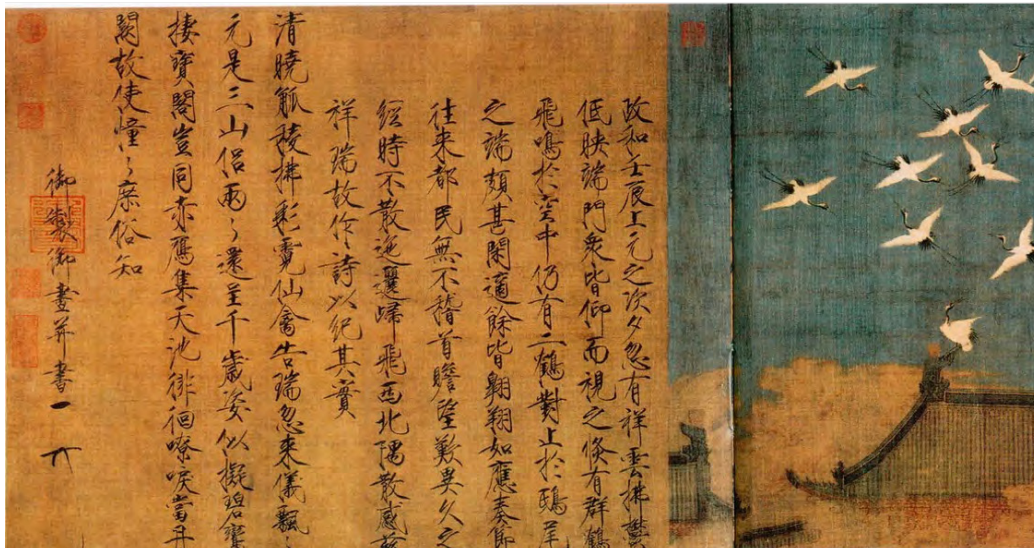 政和壬辰上元之次夕忽有祥雲拂鬱
低映端門衆皆仰而視之倏有群鶴
飛鳴於空中仍有二鶴對止於鴟尾
之端頗甚閑適餘皆翱翔如應奏節
往来都民無不稽首瞻望歎異久之
經時不散迤邐歸飛西北隅散感茲
祥瑞故作詩以紀其實
清曉觚稜拂彩霓仙禽告瑞忽来儀飄〻
元是三山侶兩〻還呈千歲姿似擬碧鸞
棲寳閣豈同赤鴈集天池徘徊嘹唳當丹
闕故使憧〻庶俗知
御製御畫并書